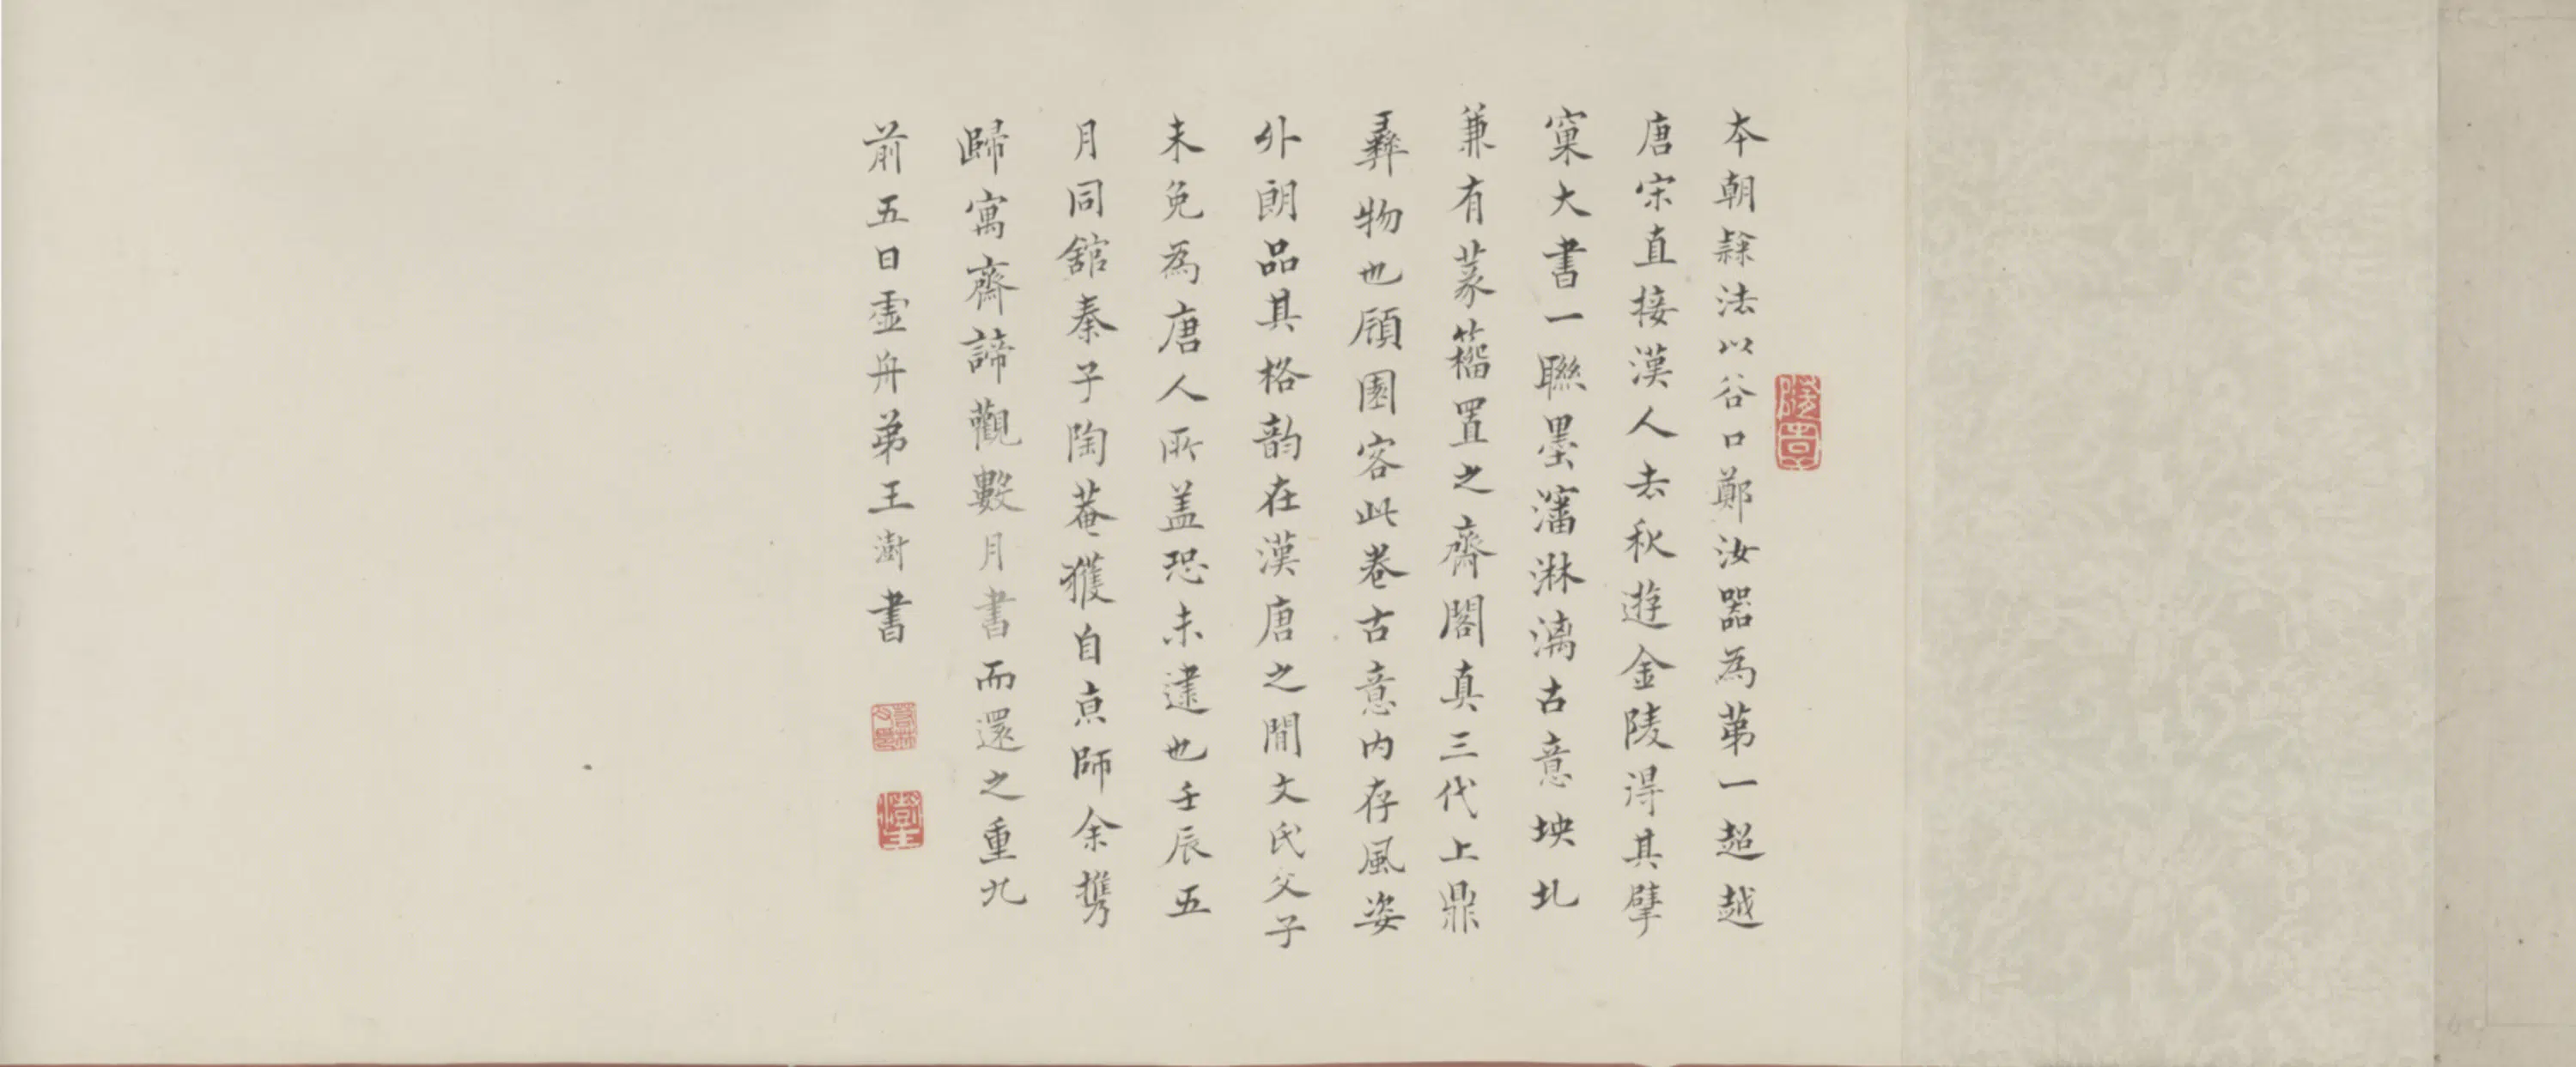 本朝隸法以谷口鄭汝器為第一超越
唐宋直接漢人去秋遊金陵得其擘
窠大書一聯墨瀋淋漓古意坱圠
兼有篆籀置之齋閣真三代上鼎
彞物也頋園客此卷古意内存風姿
外朗品其格韵在漢唐之間文氏父子
未免為唐人所盖恐未逮也壬辰五
月同舘秦子陶菴獲自京師余攜
歸寓齋諦觀數月書而還之重九
前五日虛舟弟王澍書